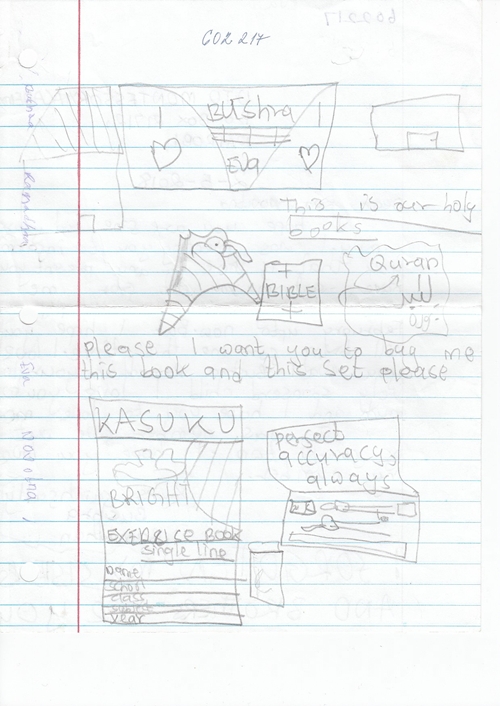 CO2 217
BUShra
Eva
This is our holy
books
Quran
BIBLE
please I want you to buy me
this book and this set please
KASUKU
perfect
accuracy,
always
BRIGHT
EXERCISE BOOK
single line
Name
school
class
subject
year